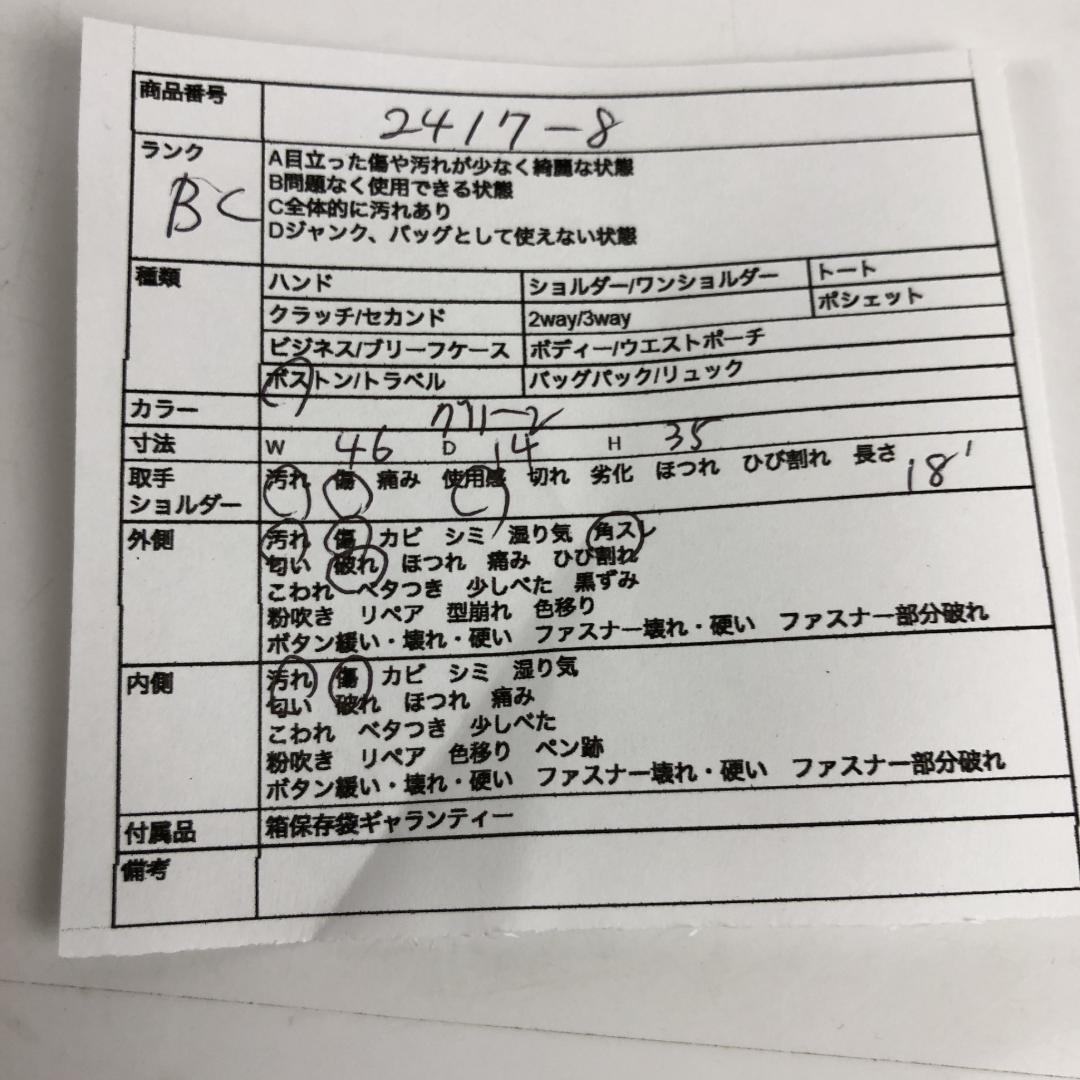 商品番号 2417-8
ランク BC
A目立った傷や汚れが少なく綺麗な状態
B問題なく使用できる状態
C全体的に汚れあり
Dジャンク、バッグとして使えない状態
種類 ハンド ショルダー/ワンショルダー トート
クラッチ/セカンド 2way/3way ポシェット
ビジネス/ブリーフケース ボディー/ウエストポーチ
ボストン/トラベル バッグパック/リュック
カラー
寸法 W 46 D 14 H 35
取手 汚れ 傷 痛み 使用感 切れ 劣化 ほつれ ひび割れ 長さ 18
ショルダー
外側 汚れ 傷 カビ シミ 湿り気 角スレ
匂い 破れ ほつれ 痛み ひび割れ
こわれ ベタつき 少しべた 黒ずみ
粉吹き リペア 型崩れ 色移り
ボタン緩い・壊れ・硬い ファスナー壊れ・硬い ファスナー部分破れ
内側 汚れ 傷 カビ シミ 湿り気
匂い 破れ ほつれ 痛み
こわれ ベタつき 少しべた
粉吹き リペア 色移り ペン跡
ボタン緩い・壊れ・硬い ファスナー壊れ・硬い ファスナー部分破れ
付属品 箱保存袋ギャランティー
備考